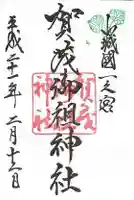 山城國一之宮
賀茂御祖神社
平成二十一年二月十一日